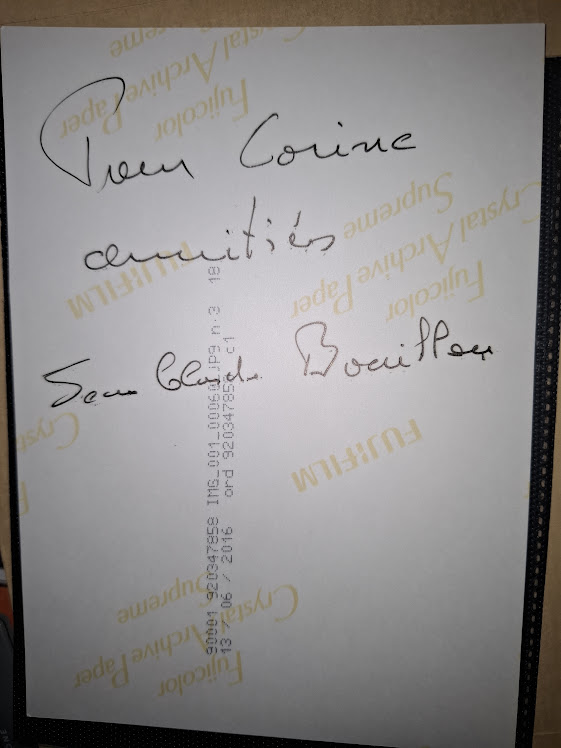 Pour Corine
amitiés
Jean Claude Bouillon
Crystal Archive Paper
Supreme
Fujicolor
FUJIFILM
Fujicolor
Crystal Archive Paper
Supreme
FUJIFILM
Cryst
Fujicolor
Crystal Archive Paper
Supreme
90001 920347858 IMG_001_00060.JPG n.3 18
13 / 06 / 2016 ord 920347858 c1